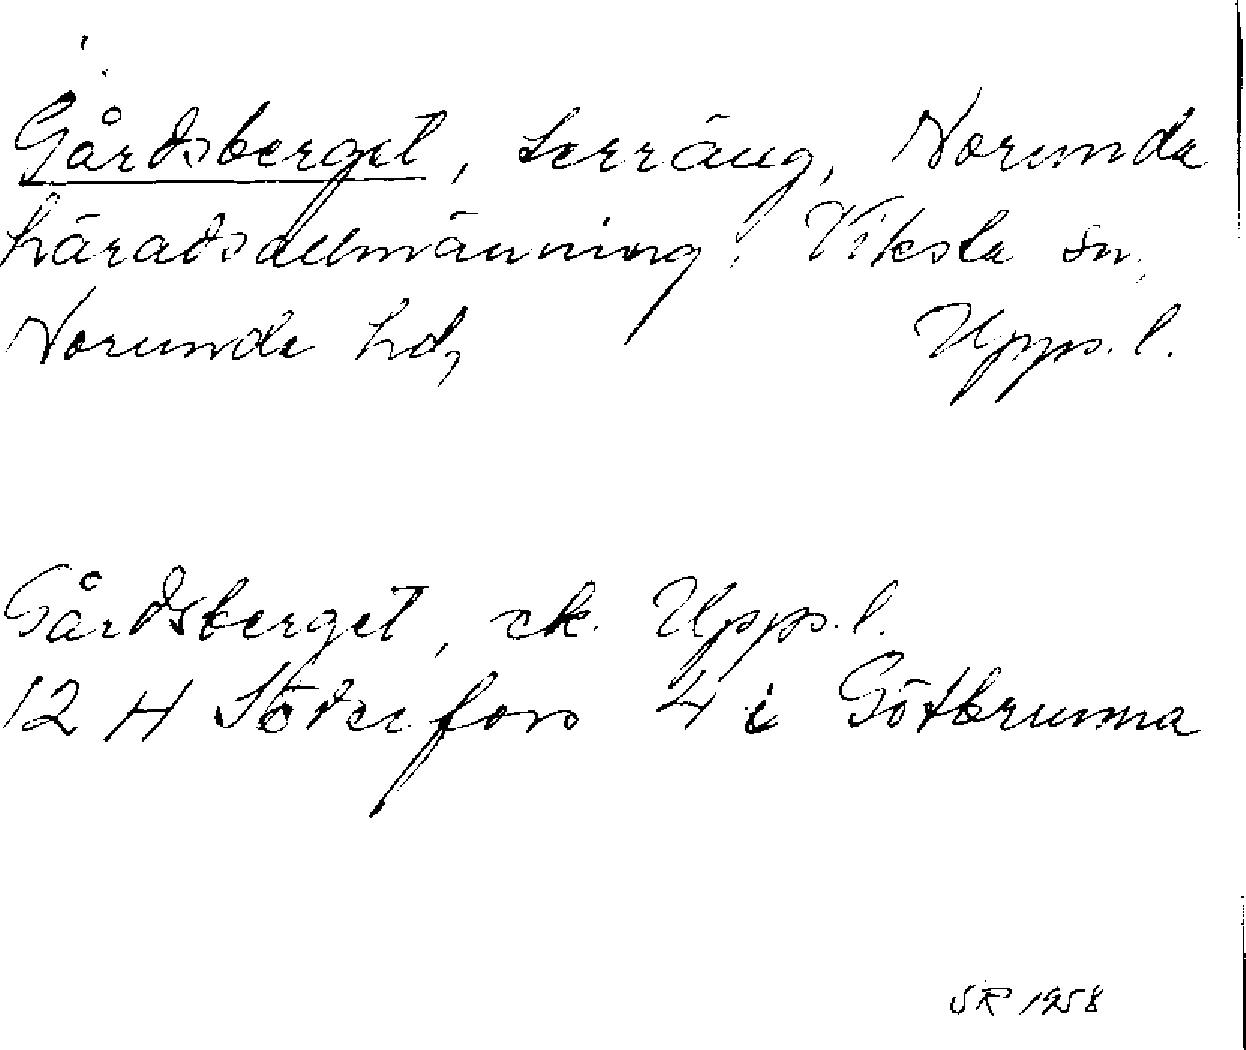 Gårdsberget, terräng, Norunda
häradsallmänning, Viksta sn,
Norunda hd, Uppl.
Gårdsberget, ek. Uppl.
12 H Söderfors 4 i Götbrunna
SR 1958